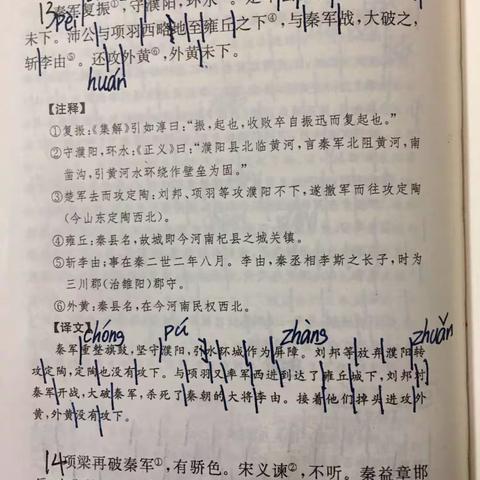 13 秦军复振①,守濮阳,环水②。
pèi
未下。沛公与项羽西略地至雍丘之下④,与秦军战,大破之,
斩李由⑤。还攻外黄⑥,外黄未下。
huán
【注释】
①复振:《集解》引如淳曰:“振,起也,收败卒自振迅而复起也。”
②守濮阳,环水:《正义》曰:“濮阳县北临黄河,言秦军北阻黄河,南
凿沟,引黄河水环绕作壁垒为固。”
③楚军去而攻定陶:刘邦、项羽等攻濮阳不下,遂撤军而往攻定陶
(今山东定陶西北)。
④雍丘:秦县名,故城即今河南杞县之城关镇。
⑤斩李由:事在秦二世二年八月。李由,秦丞相李斯之长子,时为
三川郡(治雒阳)郡守。
⑥外黄:秦县名,在今河南民权西北。
【译文】
chóng pú zhàng zhuǎn
秦军重整旗鼓,坚守濮阳,引水环城作为屏障。刘邦等放弃濮阳转
攻定陶,定陶也没有攻下。与项羽又率军西进到达了雍丘城下,刘邦对
秦军开战,大破秦军,杀死了秦朝的大将李由。接着他们掉头进攻外
黄,外黄没有攻下。
14 项梁再破秦军①,有骄色。宋义谏②,不听。秦益章邯